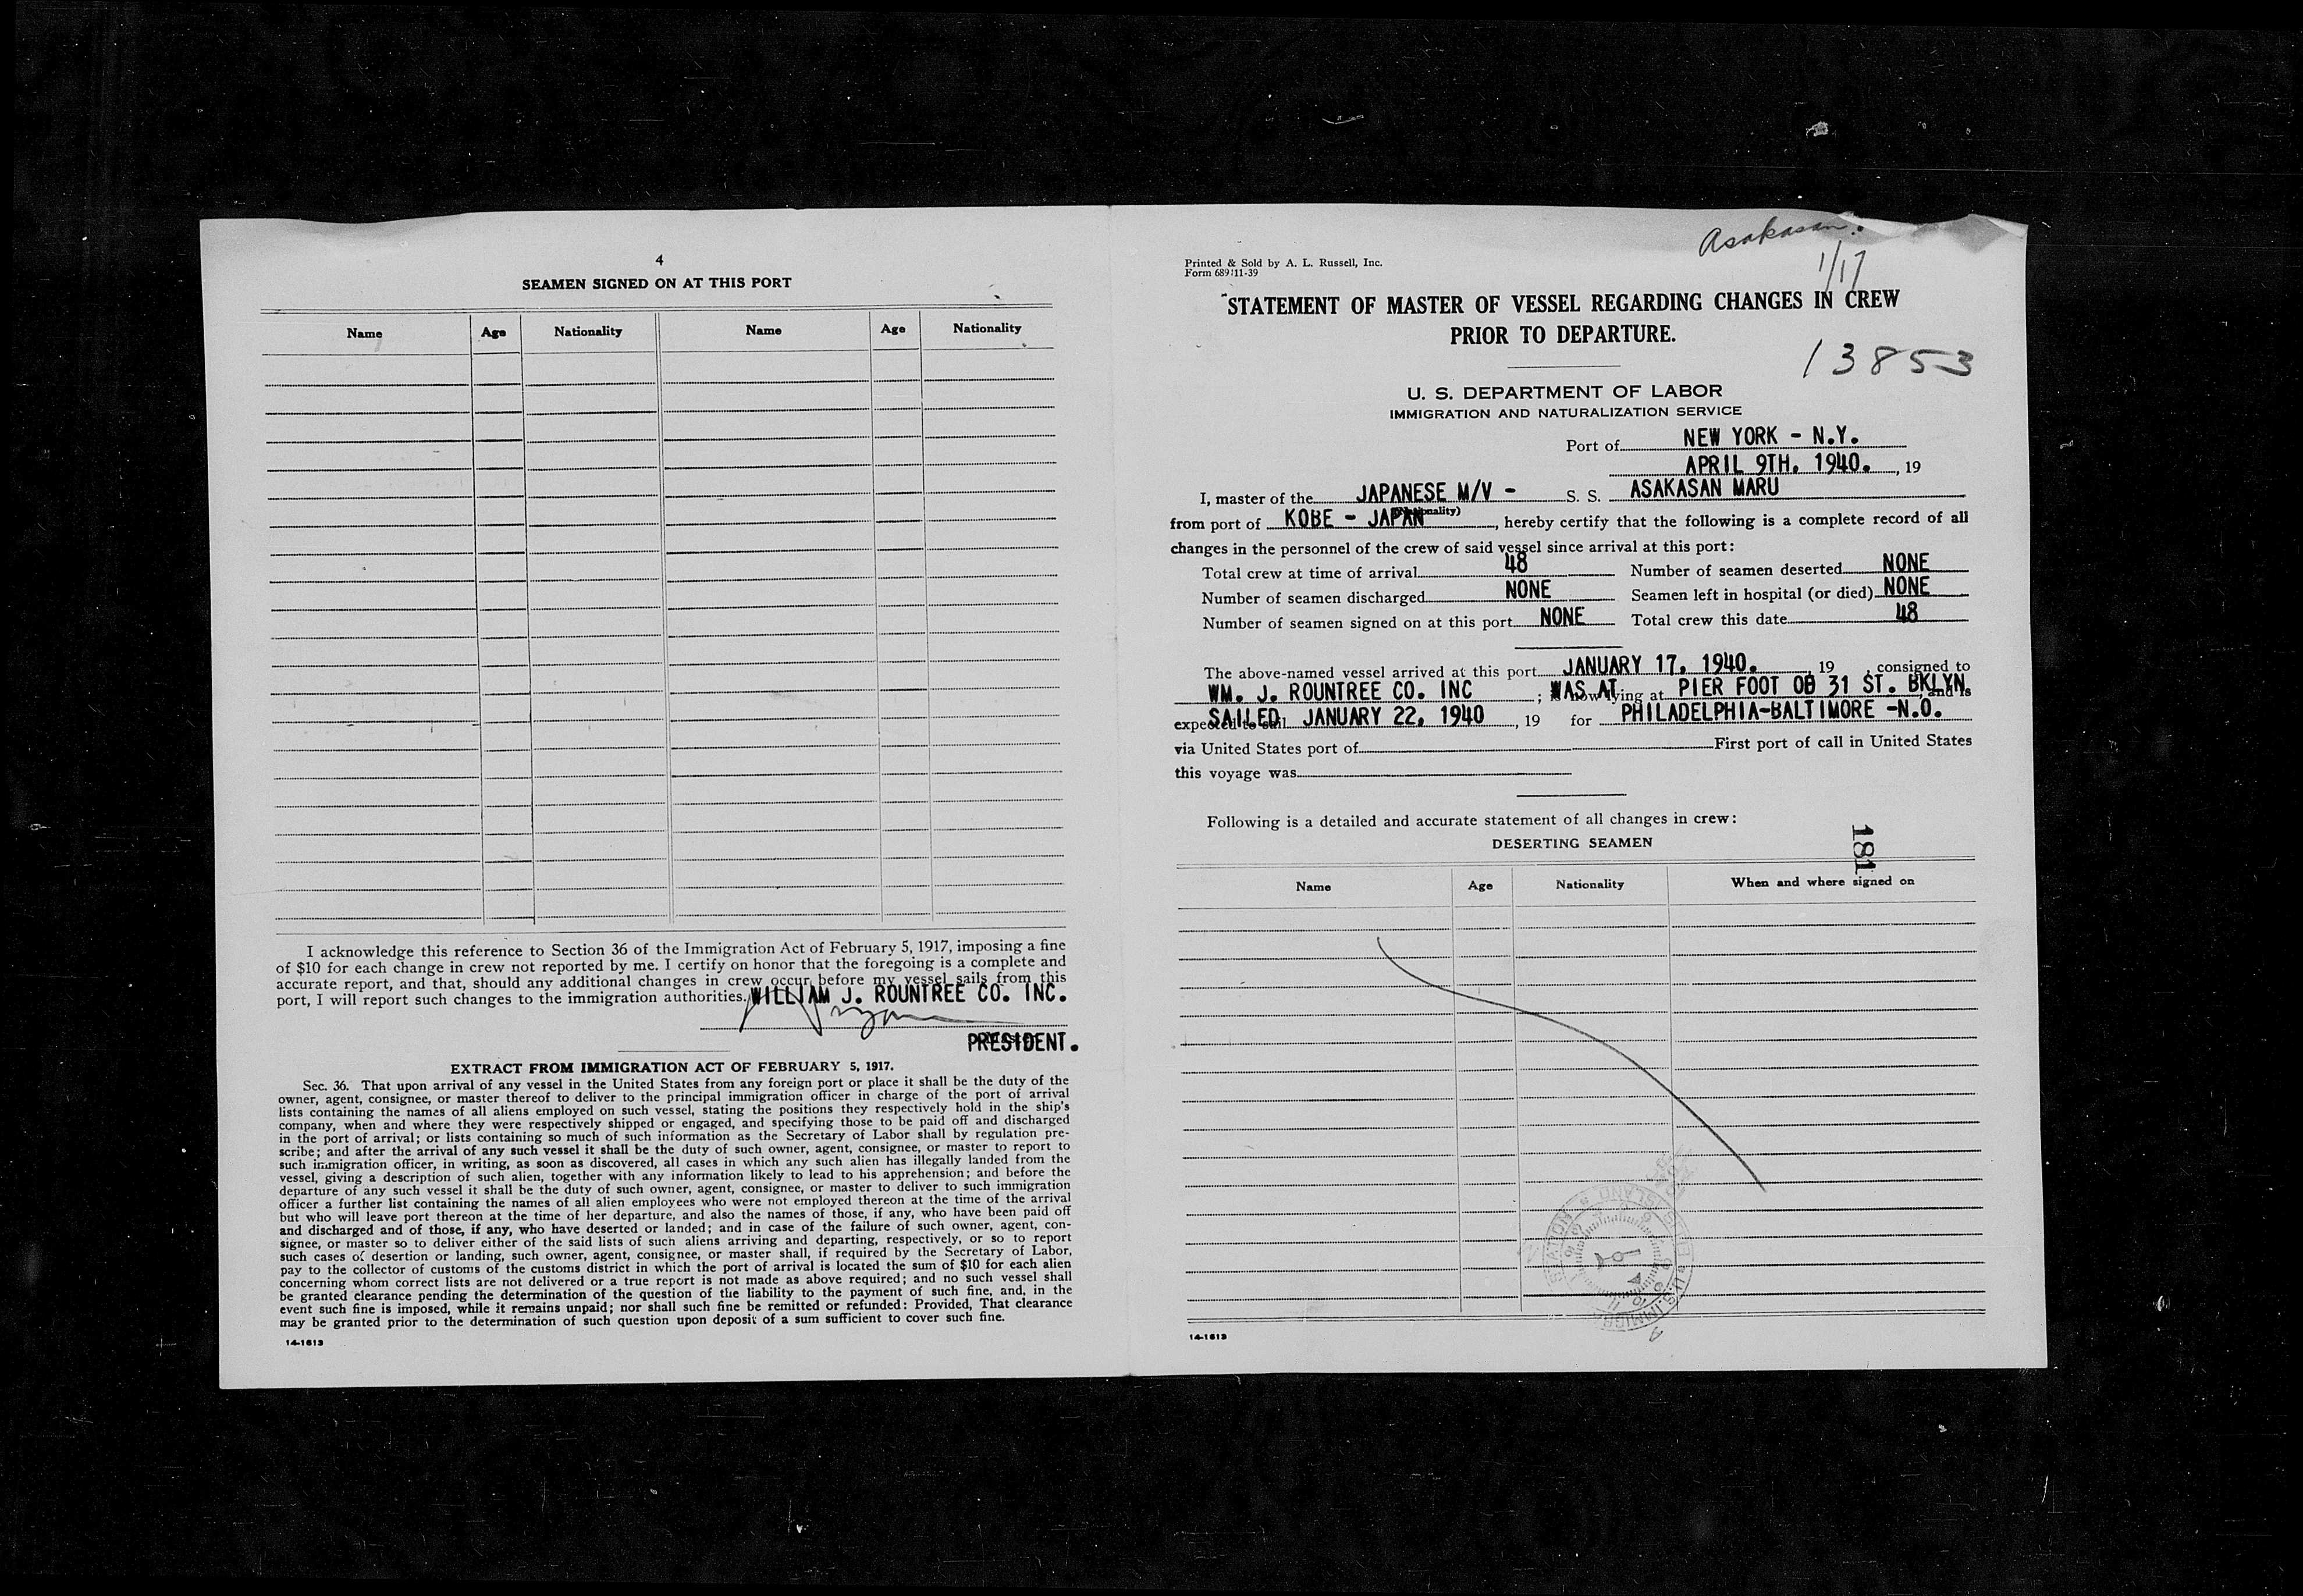 4
SEAMEN SIGNED ON AT THIS PORT
Name Age Nationality Name Age Nationality
I acknowledge this reference to Section 36 of the Immigration Act of February 5, 1917, imposing a fine
of $10 for each change in crew not reported by me. I certify on honor that the foregoing is a complete and
accurate report, and that, should any additional changes in crew occur before my vessel sails from this
port, I will report such changes to the immigration authorities. WILLIAM J. ROUNTREE CO. INC.
PRESIDENT.
EXTRACT FROM IMMIGRATION ACT OF FEBRUARY 5, 1917.
Sec. 36. That upon arrival of any vessel in the United States from any foreign port or place it shall be the duty of the
owner, agent, consignee, or master thereof to deliver to the principal immigration officer in charge of the port of arrival
lists containing the names of all aliens employed on such vessel, stating the positions they respectively hold in the ship's
company, when and where they were respectively shipped or engaged, and specifying those to be paid off and discharged
in the port of arrival; or lists containing so much of such information as the Secretary of Labor shall by regulation pre-
scribe; and after the arrival of any such vessel it shall be the duty of such owner, agent, consignee, or master to report to
such immigration officer, in writing, as soon as discovered, all cases in which any such alien has illegally landed from the
vessel, giving a description of such alien, together with any information likely to lead to his apprehension; and before the
departure of any such vessel it shall be the duty of such owner, agent, consignee, or master to deliver to such immigration
officer a further list containing the names of all alien employees who were not employed thereon at the time of the arrival
but who will leave port thereon at the time of her departure, and also the names of those, if any, who have been paid off
and discharged and of those, if any, who have deserted or landed; and in case of the failure of such owner, agent, con-
signee, or master so to deliver either of the said lists of such aliens arriving and departing, respectively, or so to report
such cases of desertion or landing, such owner, agent, consignee, or master shall, if required by the Secretary of Labor,
pay to the collector of customs of the customs district in which the port of arrival is located the sum of $10 for each alien
concerning whom correct lists are not delivered or a true report is not made as above required; and no such vessel shall
be granted clearance pending the determination of the question of the liability to the payment of such fine, and, in the
event such fine is imposed, while it remains unpaid; nor shall such fine be remitted or refunded: Provided, That clearance
may be granted prior to the determination of such question upon deposit of a sum sufficient to cover such fine.
14-1613
Asakasan.
1/17
Printed & Sold by A. L. Russell, Inc.
Form 689 11-39
STATEMENT OF MASTER OF VESSEL REGARDING CHANGES IN CREW
PRIOR TO DEPARTURE.
13853
U. S. DEPARTMENT OF LABOR
IMMIGRATION AND NATURALIZATION SERVICE
Port of NEW YORK - N.Y.
APRIL 9TH. 1940. , 19
I, master of the JAPANESE M/V - S. S. ASAKASAN MARU
(Nationality)
from port of KOBE - JAPAN , hereby certify that the following is a complete record of all
changes in the personnel of the crew of said vessel since arrival at this port:
Total crew at time of arrival 48 Number of seamen deserted NONE
Number of seamen discharged NONE Seamen left in hospital (or died) NONE
Number of seamen signed on at this port NONE Total crew this date 48
The above-named vessel arrived at this port JANUARY 17, 1940. , 19 , consigned to
WM. J. ROUNTREE CO. INC ; is now lying at WAS AT PIER FOOT OB 31 ST. BKLYN, and is
expected to sail SAILED JANUARY 22, 1940 , 19 for PHILADELPHIA-BALTIMORE -N.O.
via United States port of First port of call in United States
this voyage was
Following is a detailed and accurate statement of all changes in crew:
DESERTING SEAMEN
181
Name Age Nationality When and where signed on
14-1613